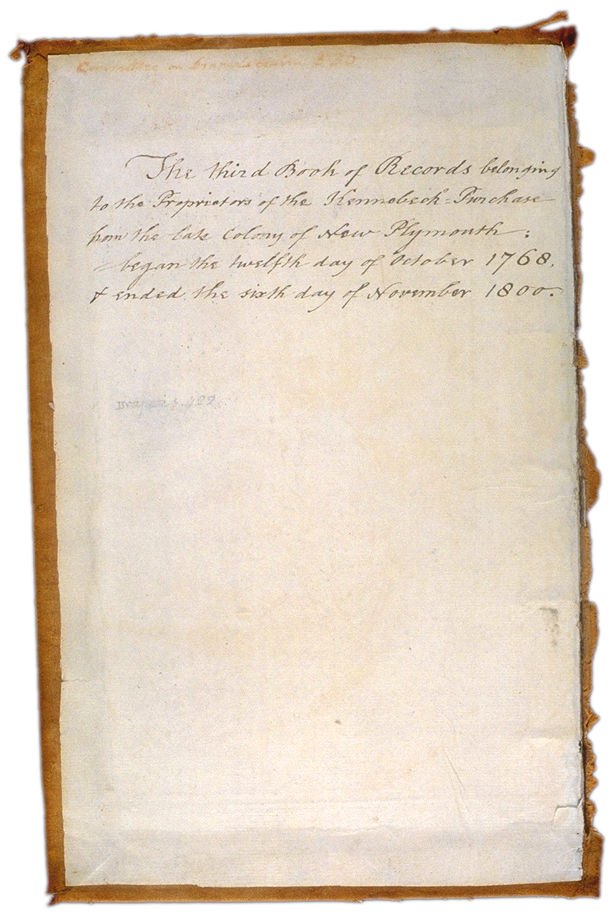 Committee on
The third Book of Records belonging
to the Proprietors of the Kennebeck=Purchase
from the late Colony of New Plymouth;
= began the twelfth day of October 1768.
& ended the sixth day of November 1800.